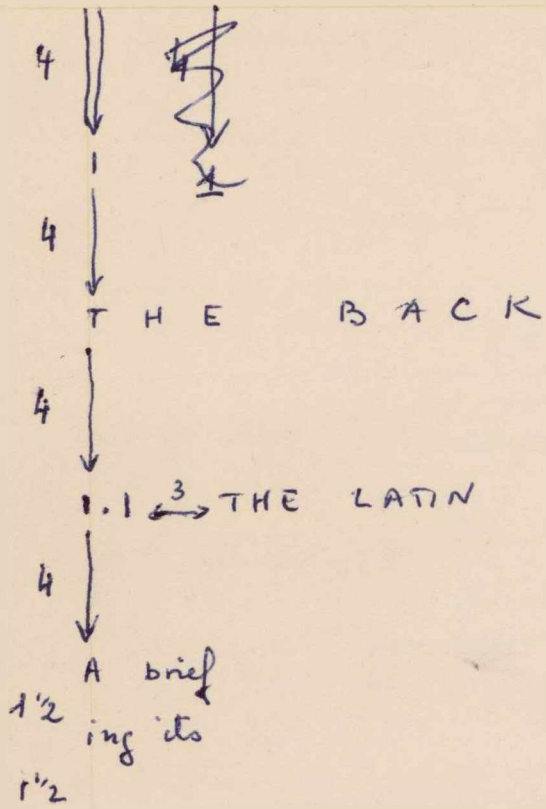 4
1
4
T H E B A C K
4
1.1 3 THE LATIN
4
A brief
1½ ing its
1½